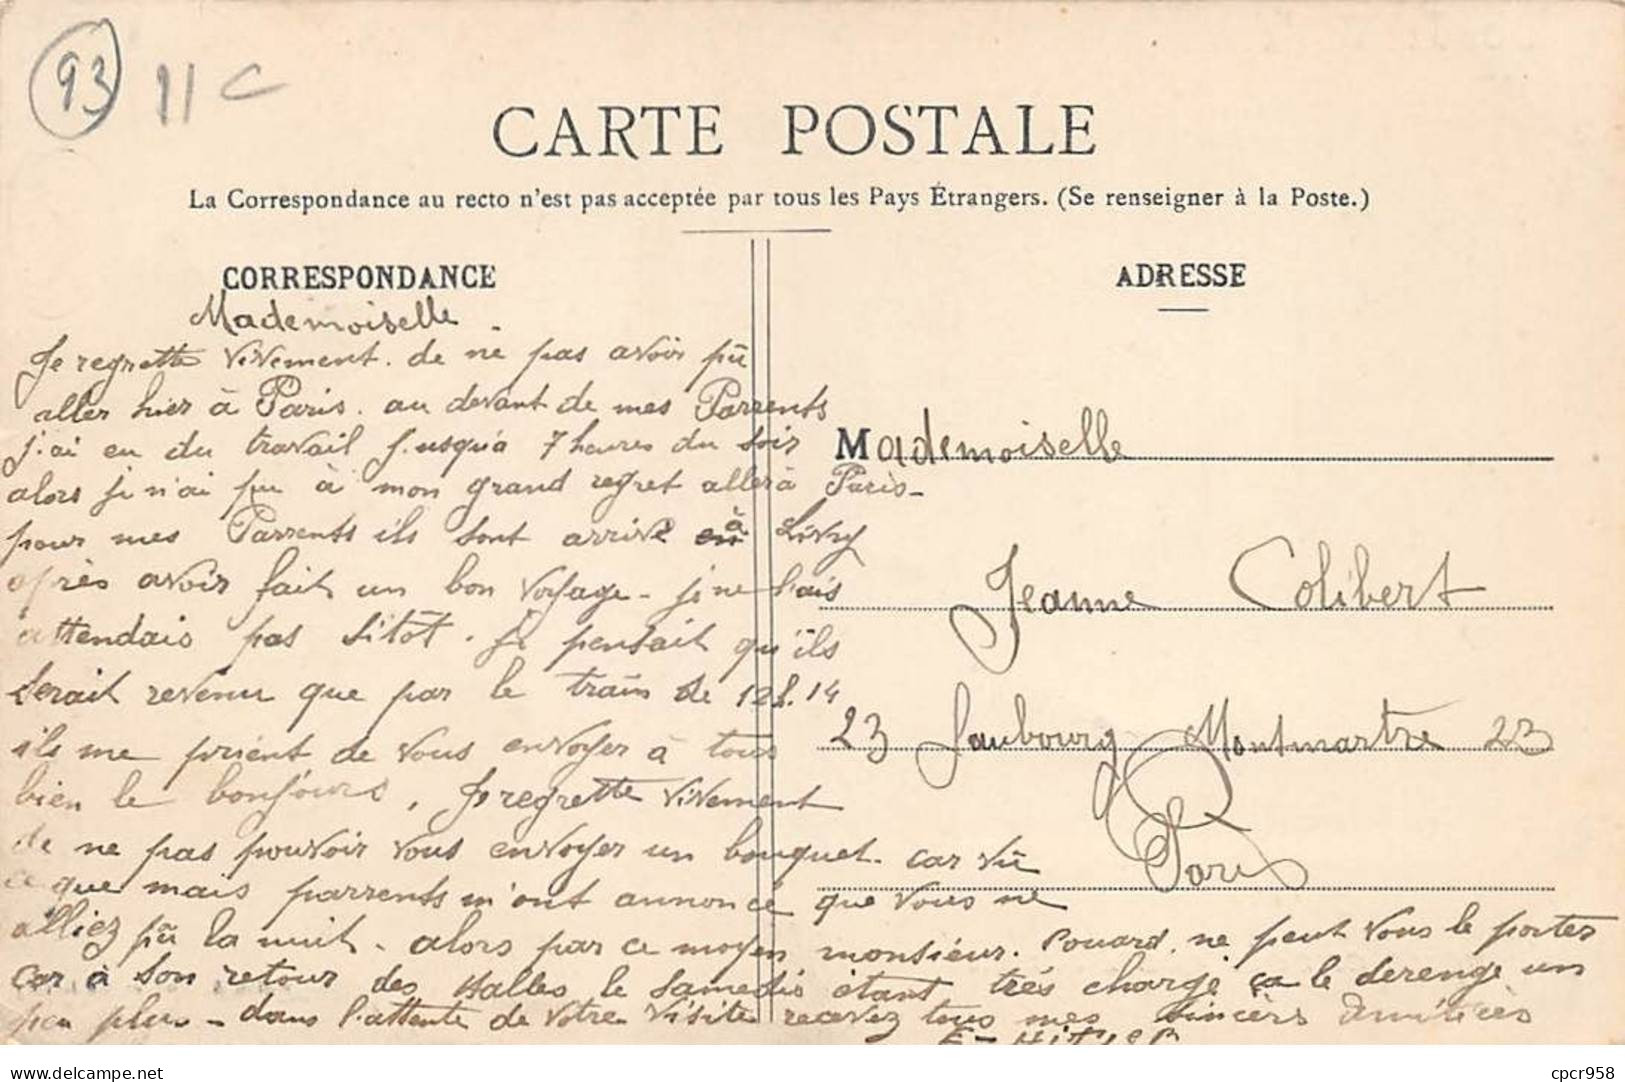 93 11 C
CARTE POSTALE
La Correspondance au recto n'est pas acceptée par tous les Pays Étrangers. (Se renseigner à la Poste.)
CORRESPONDANCE
Mademoiselle.
Je regrette vivement. de ne pas avoir pû
aller hier à Paris. au devant de mes Parrents
j'ai eu du travail jusqu'a 7 heures du soir
alors je n'ai pu à mon grand regret aller à Paris-
pour mes Parrents ils sont arrivé à Livry
après avoir fait un bon voyage - je ne l'ais
attendais pas sitôt. je pensait qu'ils
serait revenu que par le train de 12h.14
ils me prient de vous envoyer à tous
bien le bonjours. Je regrette vivement
de ne pas pouvoir vous envoyer un bouquet. car vû
ce que mais parrents m'ont annoncé que vous ne
alliez pû la nuit - alors par ce moyen monsieur. Pouard. ne peut vous le porter
car à son retour des Halles le samedis étant trés chargé ça le derenge un
peu plus - dans l'attente de votre visite recevez tous mes sincèrs Amitiès
ADRESSE
Mademoiselle
Jeanne Colibert
23 Faubourg Montmartre 23
Paris
delcampe.net
cpcr958